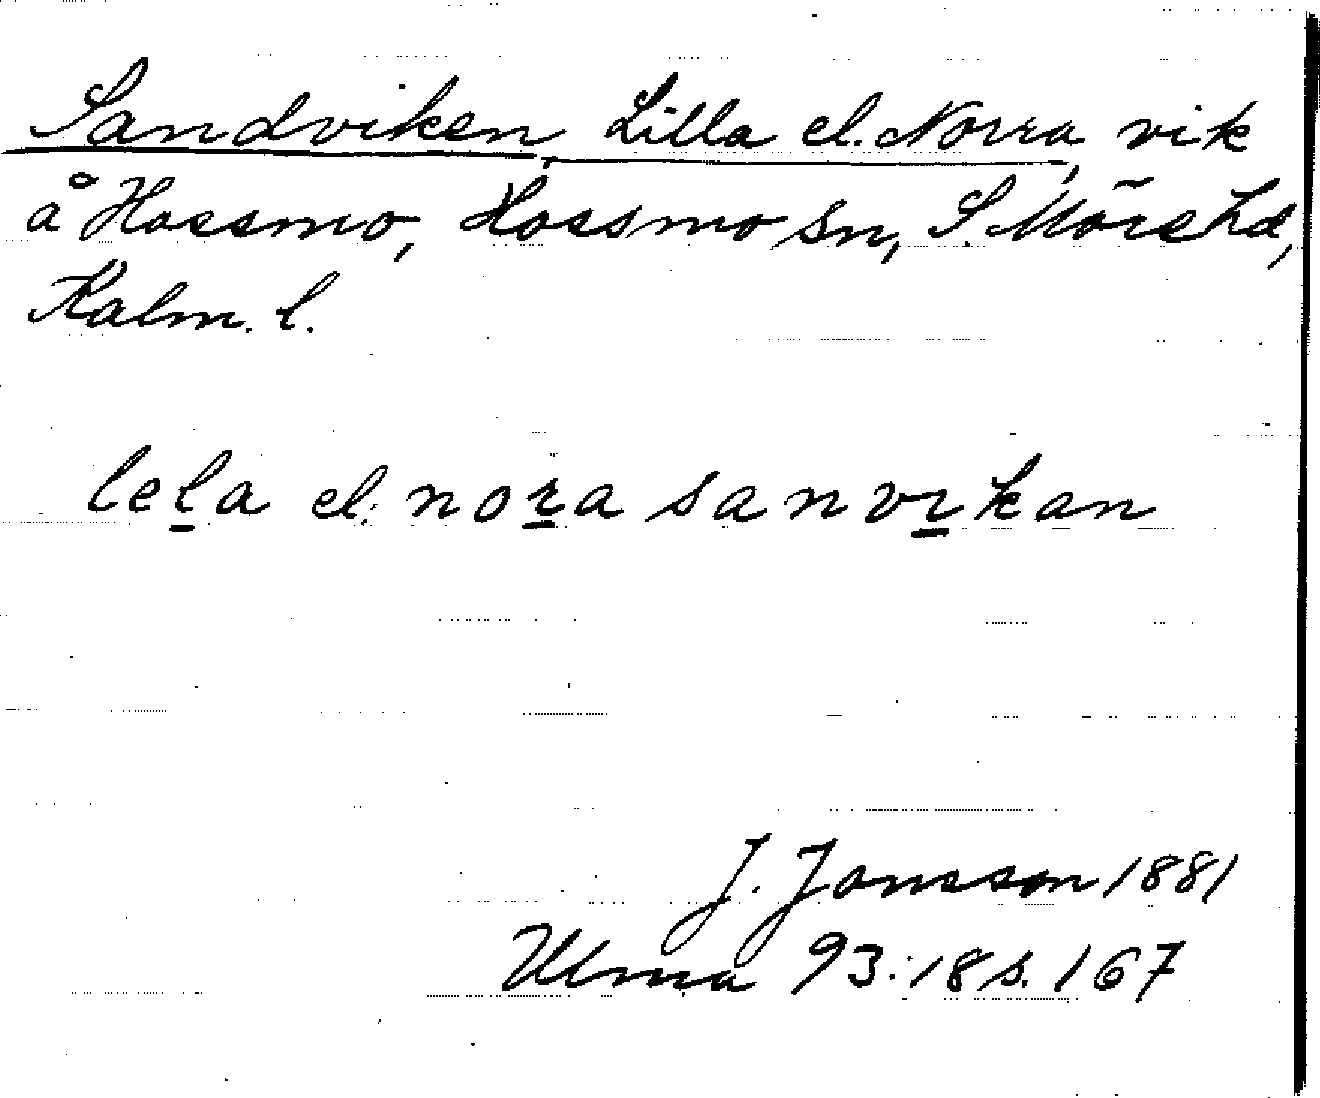 Sandviken, Lilla el. Norra, vik
å Hossmo, Hossmo sn, S. Möre hd,
Kalm. l.
lela el. nora sanvikan
J. Jonsson 1881
Ulma 93:18 s. 167